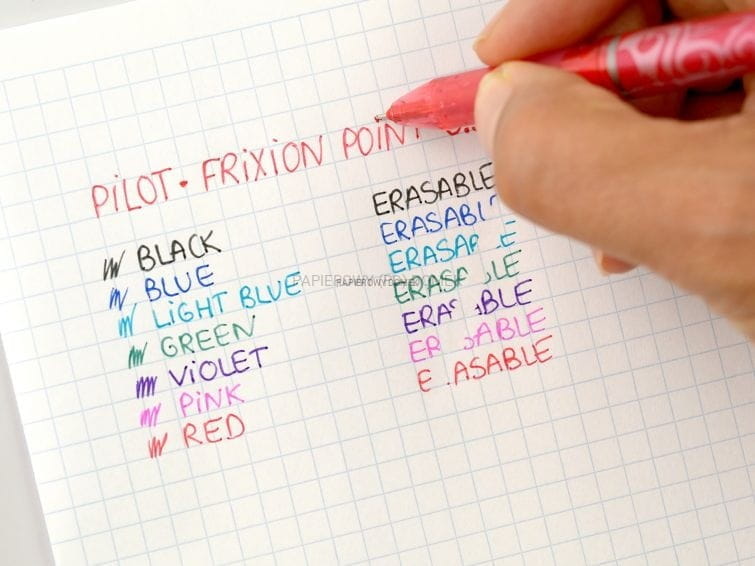 PiLOT • FRiXiON POiNT
BLACK
BLUE
LiGHT BLUE
GREEN
ViOLET
PiNK
RED
ERASABLE
ERASABL
ERASA LE
ERAS LE
ERA BLE
ER ABLE
E ASABLE